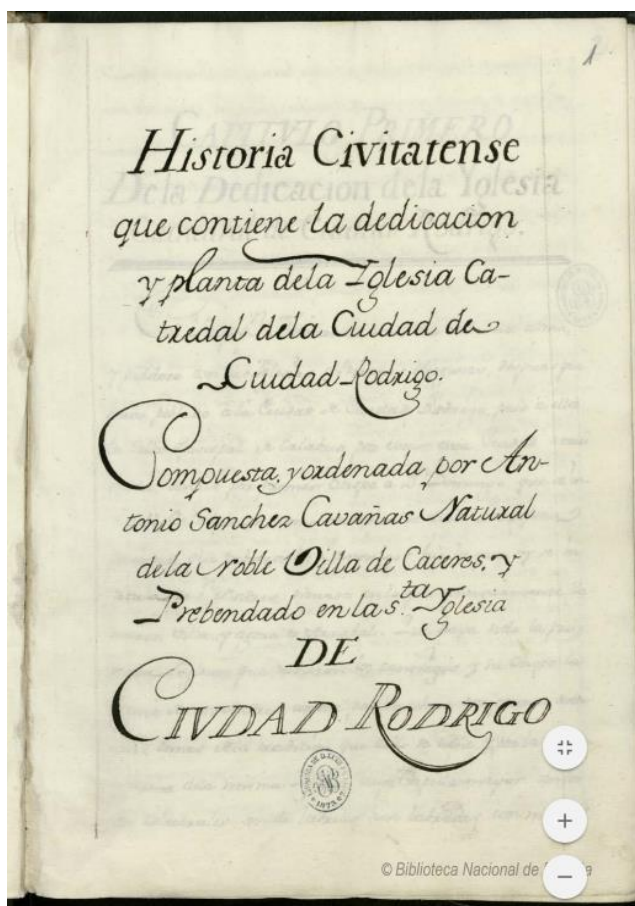 1
Historia Civitatense
que contiene la dedicacion
y planta dela Iglesia Ca-
tredal dela Ciudad de
Ciudad-Rodrigo.
Compuesta, y ordenada, por An-
tonio Sanchez Cavañas Natural
dela Noble Villa de Caceres, y
Prebendado en la s.ta Yglesia
DE
CIVDAD RODRIGO
© Biblioteca Nacional de